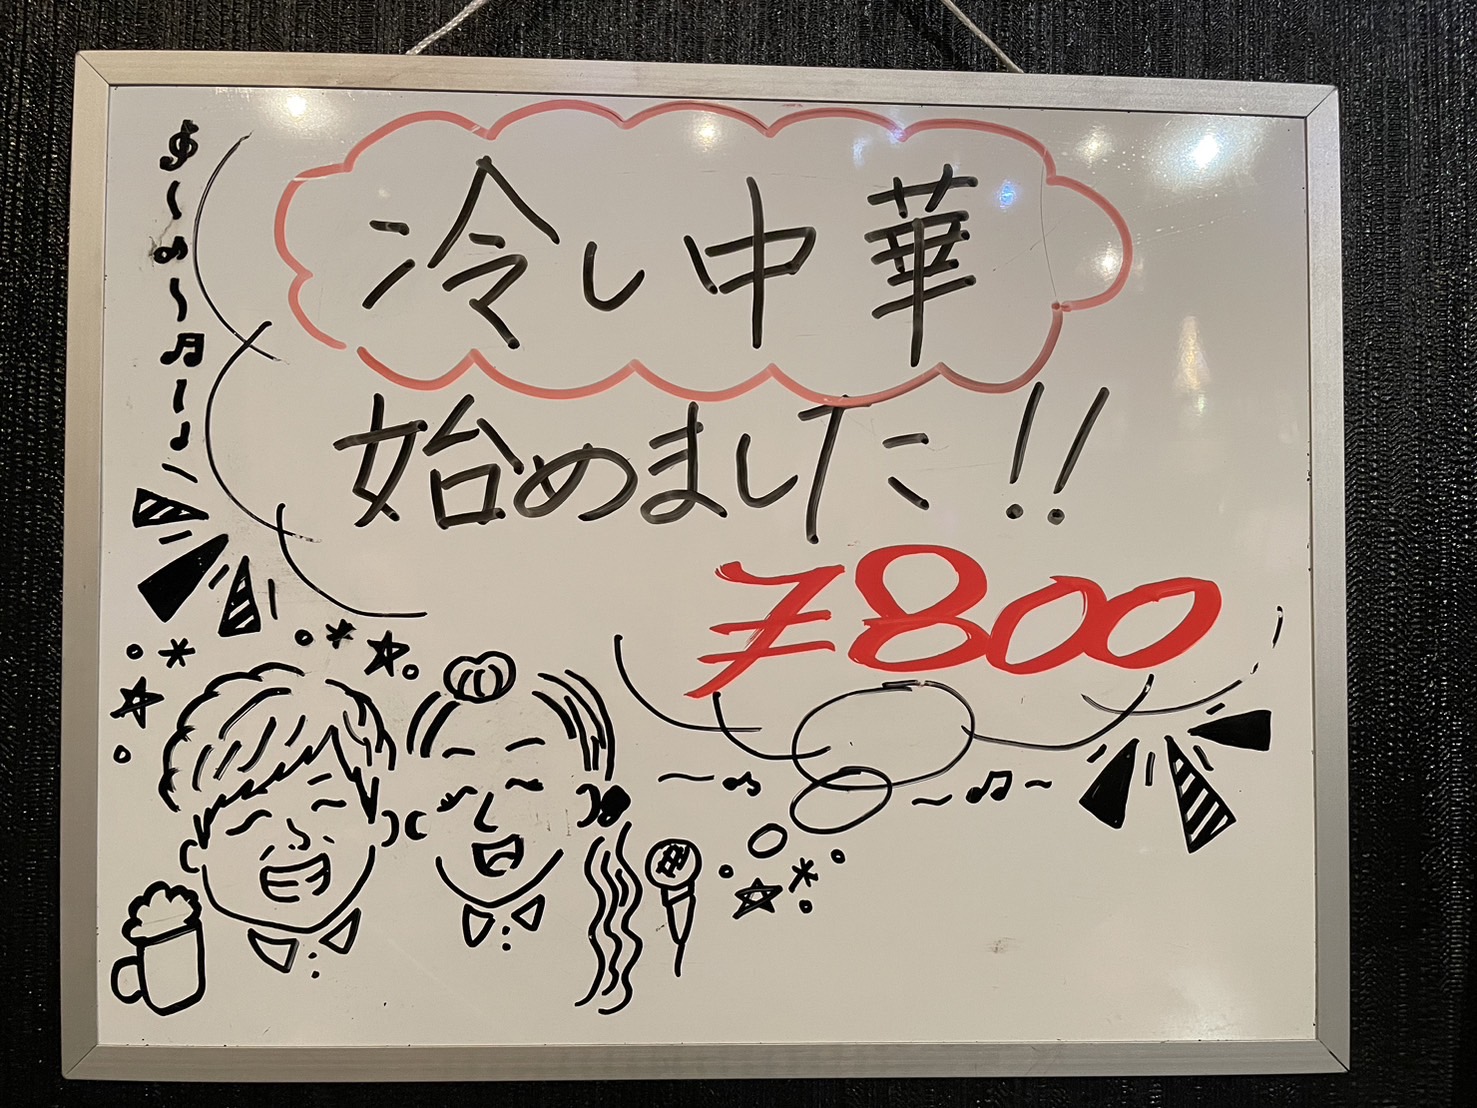 冷し中華
始めました!!
¥800